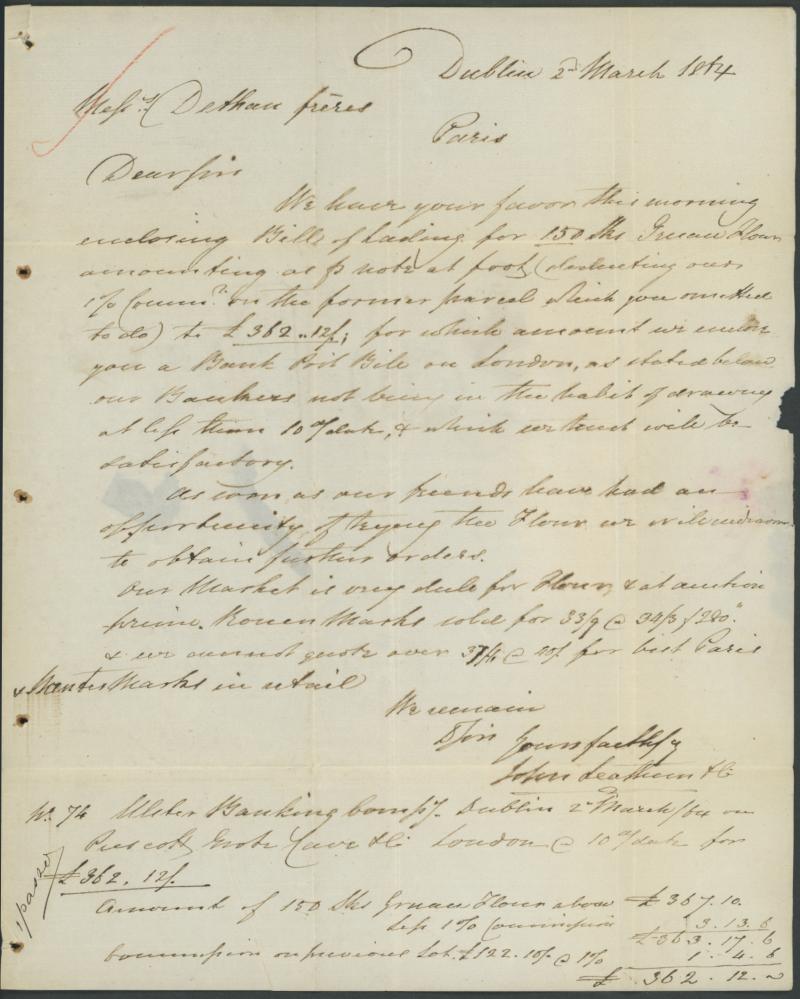 Dublin 2d March 1864
Messrs Dethan frères
Paris
Dear Sirs
We have your favor this morning
enclosing Bill of Lading for 150 Sks Gruau Flour
amounting as p note at foot (deducting our
1% Commn on the former parcel which you omitted
to do) to £362..12/; for which amount we enclose
you a Bank Post Bill on London, as stated below
our Bankers not being in the habit of drawing
at less than 10 d/date, & which we trust will be
satisfactory.
As soon as our friends have had an
opportunity of trying the Flour we will endeavour
to obtain further orders.
Our Market is very dull for Flour, & at auction
prime Rouen Marks sold for 33/9 @ 34/3 p 280"
& we cannot quote over 37/6 @ 40/ for best Paris
& Nantes Marks in retail
We remain
D Sirs
Yours faithfully
John Leathem & Co
No. 74 Ulster Banking Compy. Dublin 2d March/64 on
Prescott, Grote Cave & Co London @ 10 d/date for
£362.12/.
Amount of 150 Sks Gruau Flour above £367.10.
Less 1% Commission 3.13.6
£363.17.6
Commission on previous Lot. £122.10/. @ 1% 1.4.6
£362.12.~